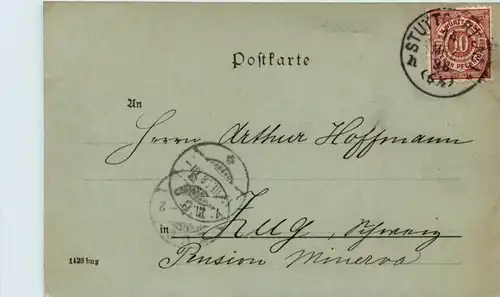 STUTTGART
10
Postkarte
An
Herrn Arthur Hoffmann
in Zug, Schweiz
Pension Minerva
1428 bng